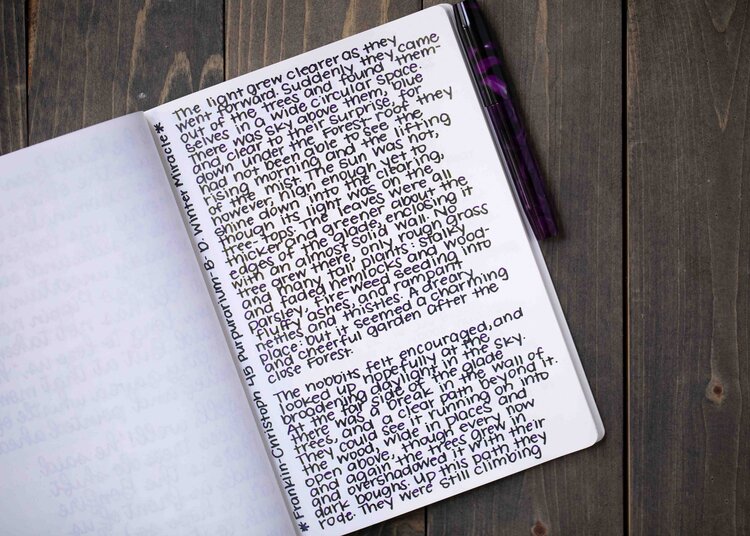 The light grew clearer as they
went forward. Suddenly they came
out of the trees and found them-
selves in a wide circular space.
There was sky above them, blue
and clear to their surprise, for
down under the Forest-roof they
had not been able to see the
rising morning and the lifting
of the mist. The sun was not,
however, high enough yet to
shine down into the clearing,
though its light was on the
tree-tops. The leaves were all
thicker and greener about the
edges of the glade, enclosing it
with an almost solid wall. No
tree grew there, only rough grass
and many tall plants: stalky
and faded hemlocks and wood-
parsley, fire-weed seeding into
fluffy ashes, and rampant
nettles and thistles. A dreary
place: but it seemed a charming
and cheerful garden after the
close Forest.
The hobbits felt encouraged, and
looked up hopefully at the
broadening daylight in the sky.
At the far side of the glade
there was a break in the wall of
trees, and a clear path beyond it.
they could see it running on into
the wood, wide in places and
open above, though every now
and again the trees grew in
and overshadowed it with their
dark boughs. Up this path they
rode. They were still climbing
*Franklin Christoph 45 Purpurarium B. D. Winter Miracle*